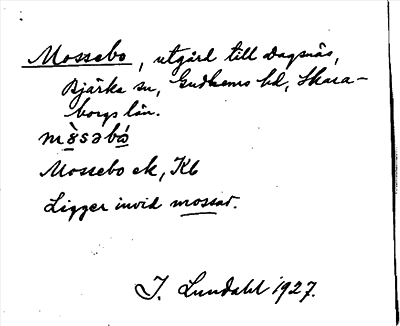 Mossebo, utgård till Dagsnäs,
Bjärka sn, Gudhems hd, Skara-
borgs län.
Mossebo ek, Kb
Ligger invid mossar.
I. Lundahl 1927.